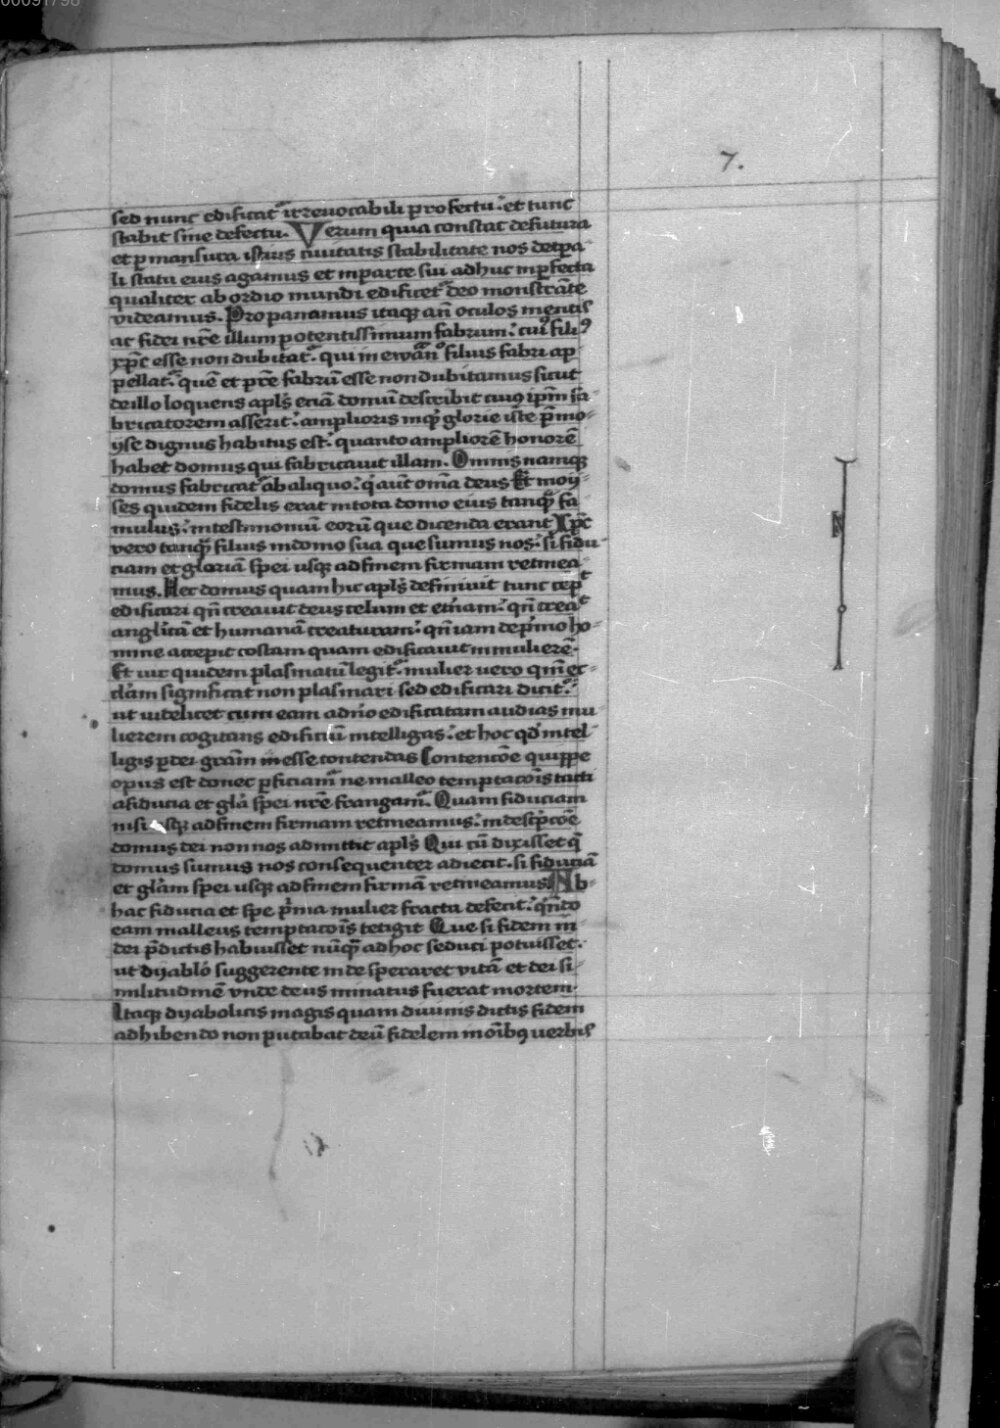 00091798
7.
sed nunc edificat᷑ irreuocabili profectu: et tunc
stabit sine defectu. Verum quia constat de futura
et ꝑmansura istius ciuitatis stabilitate nos de tꝑa
li statu eius agamus et in parte sui adhuc inꝑfecta
qualiter ab exordio mundi edificet᷑ deo monstrāte
videamus. Proponamus itaqꝫ an̄ oculos mentis
ac fidei nr̄e illum potentissimum fabrum: cuiꝰ filiꝰ
xp̄c esse non dubitat᷑. qui in ewāḡᵒ filius fabri ap
pellat᷑. quē et pr̄e fabrū esse non dubitamus sicut
de illo loquens apl̄s eciā domū describit cuiꝰ ip̄m fa
bricatorem asserit: amplioris inqͥt glorie iste p̄ mo-
yse dignus habitus est: quanto ampliorē honorē
habet domus qui fabricauit illam. Omnis namqꝫ
domus fabricat᷑ ab aliquo: qͥ aut̄ om̄ia deus Et moy-
ses quidem fidelis erat in tota domo eius tanqͣ fa
mulus: in testimonium eorū que dicenda erant Xp̄c
vero tanqͣ filius in domo sua que sumus nos: si fidu-
ciam et gloriā spei usqꝫ ad finem firmam retinea
mus. Hec domus quam hic apl̄s definiuit tunc cepͭ
edificari qn̄ creauit deus celum et etn̄am: qn̄ creaͭ
anglicā et humanā creaturam: qn̄ iam de pͥmo ho-
mine accepit costam quam edificauit in mulierē.
Et vir quidem plasmatū legit᷑. mulier vero qm̄ ec-
cl̄am significat non plasmari sed edificari dicit᷑.
ut videlicet cum eam adn̄io edificatam audias mu-
lierem cogitans edificiū intelligas: et hoc qd̓ intel-
ligis ꝑ dei grām in esse contendas Contencōe quippe
opus est donec ꝑficiam᷑ ne malleo temptacōis tacti
a fiducia et gl̄a spei nr̄e frangam᷑. Quam fiduciam
nisi usqꝫ ad finem firmam retineamus: in descͥpcōe
domus dei non nos admittit apl̄s Qui cū dixisset qͥ
domus sumus nos consequenter adiecit. si fiduciā
et gl̄am spei usqꝫ ad finem firmā retineamus Ab
hac fiducia et spe pͥma mulier fracta defecit: qn̄do
eam malleus temptacōis tetigit Que si fidem in
dei p̄dictis habuisset nūqͣ ad hoc seduci potuisset.
ut dyabolo suggerente inde speraret vitā et dei si-
militudinē vnde deus minatus fuerat mortem.
Itaqꝫ dyabolicis magis quam diuinis dictis fidem
adhibendo non putabat deū fidelem in om̄ibꝰ uerbis
N